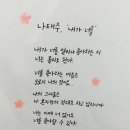 나태주, 내가 너를
내가 너를 얼마나 좋아하는지
너는 몰라도 된다
너를 좋아하는 마음은
오로지 나의 것이요,
나의 그리움은
나 혼자만의 것으로도 차고 넘치니까
나는 이제 너 없이도
너를 좋아할 수 있다